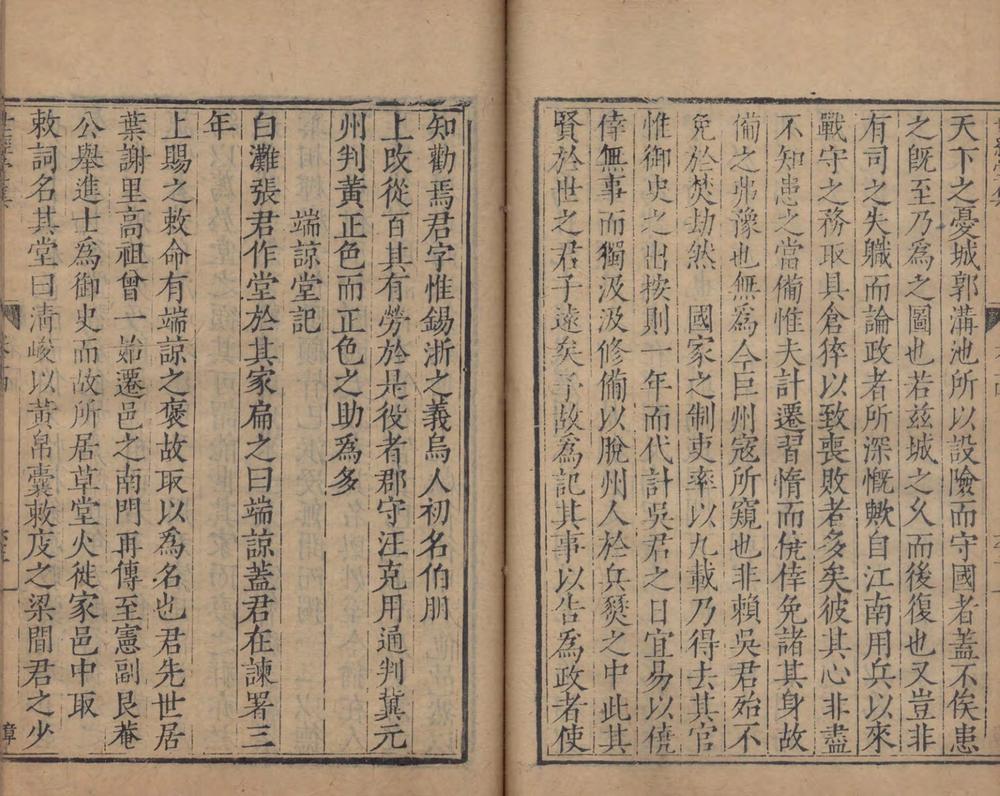 天下之憂城郭溝池所以設險而守國者蓋不俟患
之既至乃爲之圖也若兹城之久而後復也又豈非
有司之失職而論政者所深慨歟自江南用兵以來
戰守之務取具倉猝以致喪敗者多矣彼其心非盡
不知患之當備惟夫計遷習惰而僥倖免諸其身故
備之弗豫也無爲今巨州寇所窺也非賴吳君殆不
免於焚劫然　國家之制吏率以九載乃得去其官
惟御史之出按則一年而代計吳君之日宜易以僥
倖無事而獨汲汲修備以脫州人於兵燹之中此其
賢於世之君子遠矣予故爲記其事以告爲政者使
知勸焉君字惟錫浙之義烏人初名伯朋
上改從百其有勞於是役者郡守汪克用通判龔元
州判黃正色而正色之助爲多
端諒堂記
白灘張君作堂於其家扁之曰端諒蓋君在諫署三
年
上賜之敕命有端諒之褒故取以爲名也君先世居
葉謝里高祖曾一始遷邑之南門再傳至憲副艮菴
公舉進士爲御史而故所居草堂火徙家邑中取
敕詞名其堂曰清峻以黃帛囊敕庋之梁間君之少
章